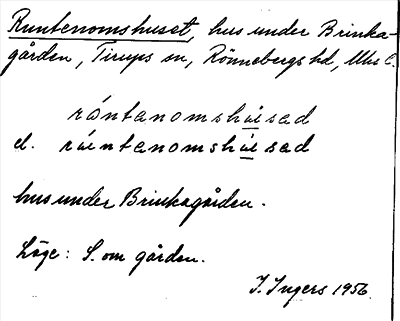 Runtenomshuset, hus under Brinka-
gården, Tirups sn, Rönnebergs hd, Mhs l.
råntanomshúsad
el. rúntanomshúsad
hus under Brinkagården.
Läge: S. om gården.
I. Ingers 1956.